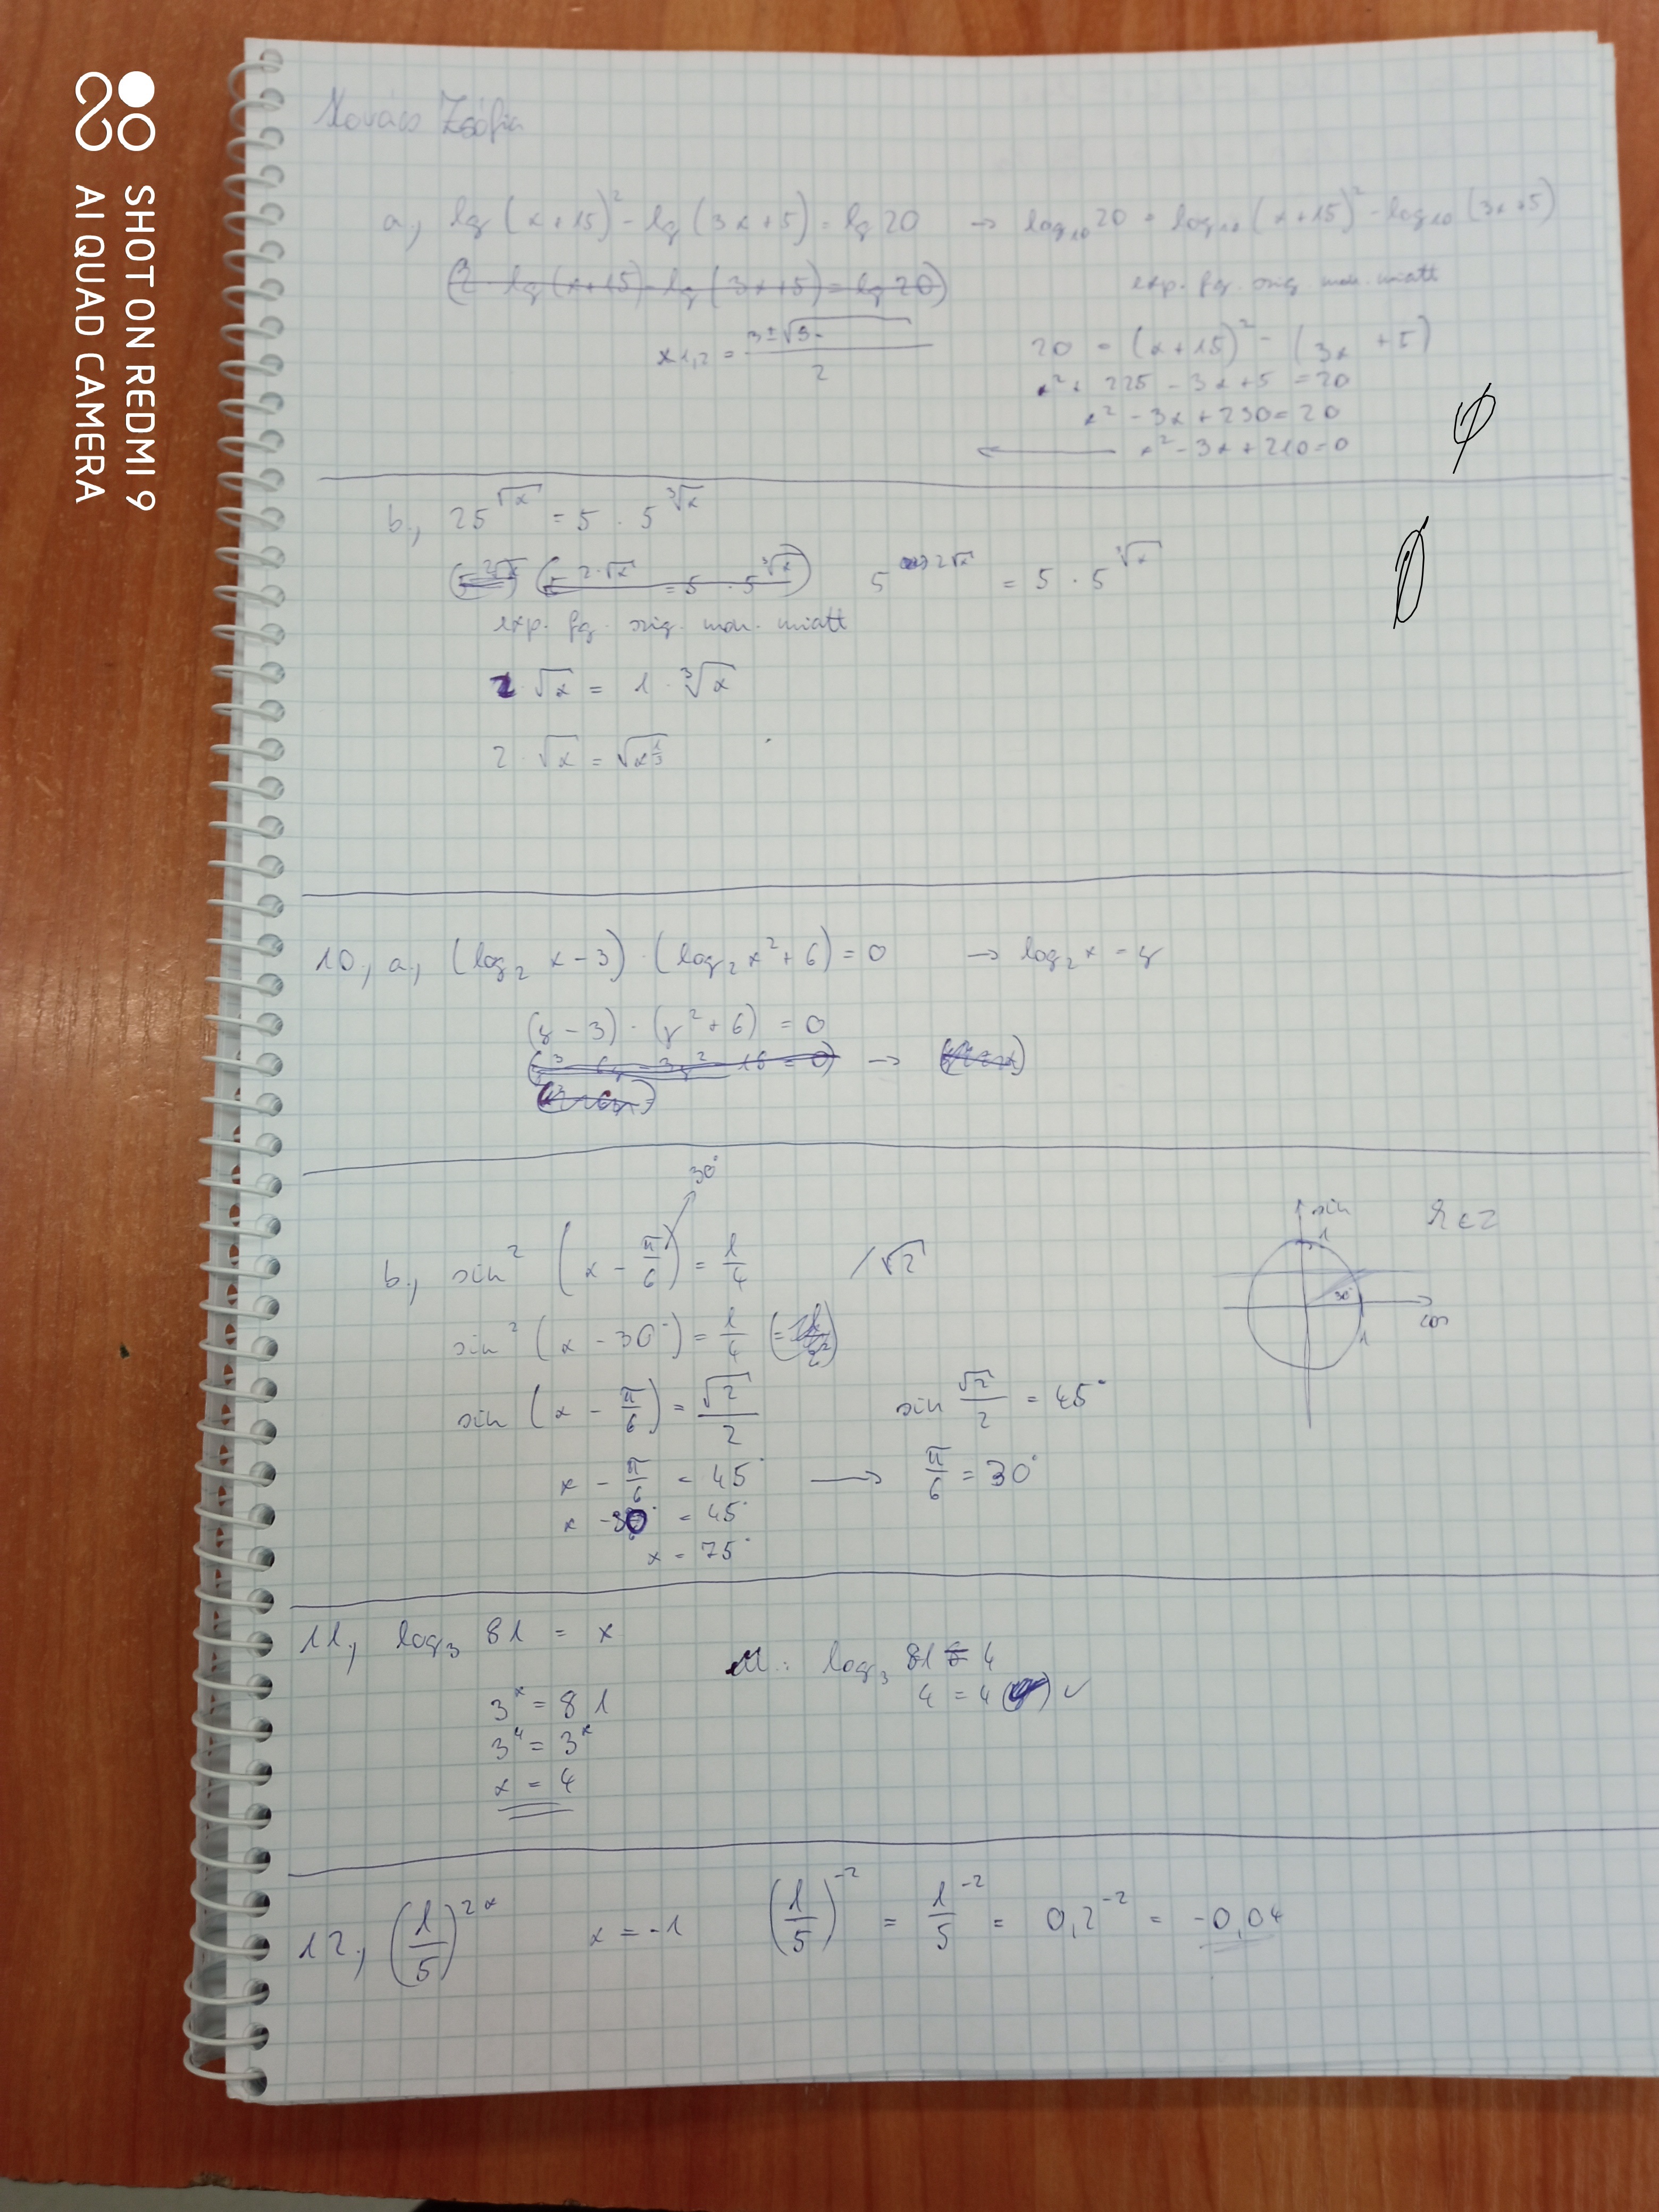 SHOT ON REDMI 9
AI QUAD CAMERA
Kovács Zsófia
a., lg (x+15)² - lg (3x+5) = lg 20 → log₁₀ 20 = log₁₀ (x+15)² - log₁₀ (3x+5)
(2 · lg (x+15) - lg (3x+5) = lg 20)
exp. fg. szig. mon. miatt
x1,2 = (3 ± √9-)/2
20 = (x+15)² - (3x +5)
x² + 225 - 3x + 5 = 20
x² - 3x + 230 = 20
← x² - 3x + 210 = 0
b., 25^√x = 5 · 5^∛x
(5^2√x) (5^2·√x = 5 · 5^∛x) 5^2√x = 5 · 5^∛x
exp. fg. szig. mon. miatt
2 · √x = 1 · ∛x
2 · √x = √x^⅓
10., a., (log₂ x - 3) · (log₂ x² + 6) = 0 → log₂ x = y
(y - 3) · (y² + 6) = 0
30°
b., sin² (x - π/6) = 1/4 /√2
sin² (x - 30°) = 1/4
sin (x - π/6) = √2/2 sin √2/2 = 45°
x - π/6 = 45° → π/6 = 30°
x - 30° = 45°
x = 75°
sin
1
k ∈ Z
30°
cos
1
11., log₃ 81 = x
3ˣ = 81
3⁴ = 3ˣ
x = 4
M.: log₃ 81 = 4
4 = 4 ✓
12., (1/5)^2x x = -1 (1/5)⁻² = 1⁻²/5 = 0,2⁻² = -0,04